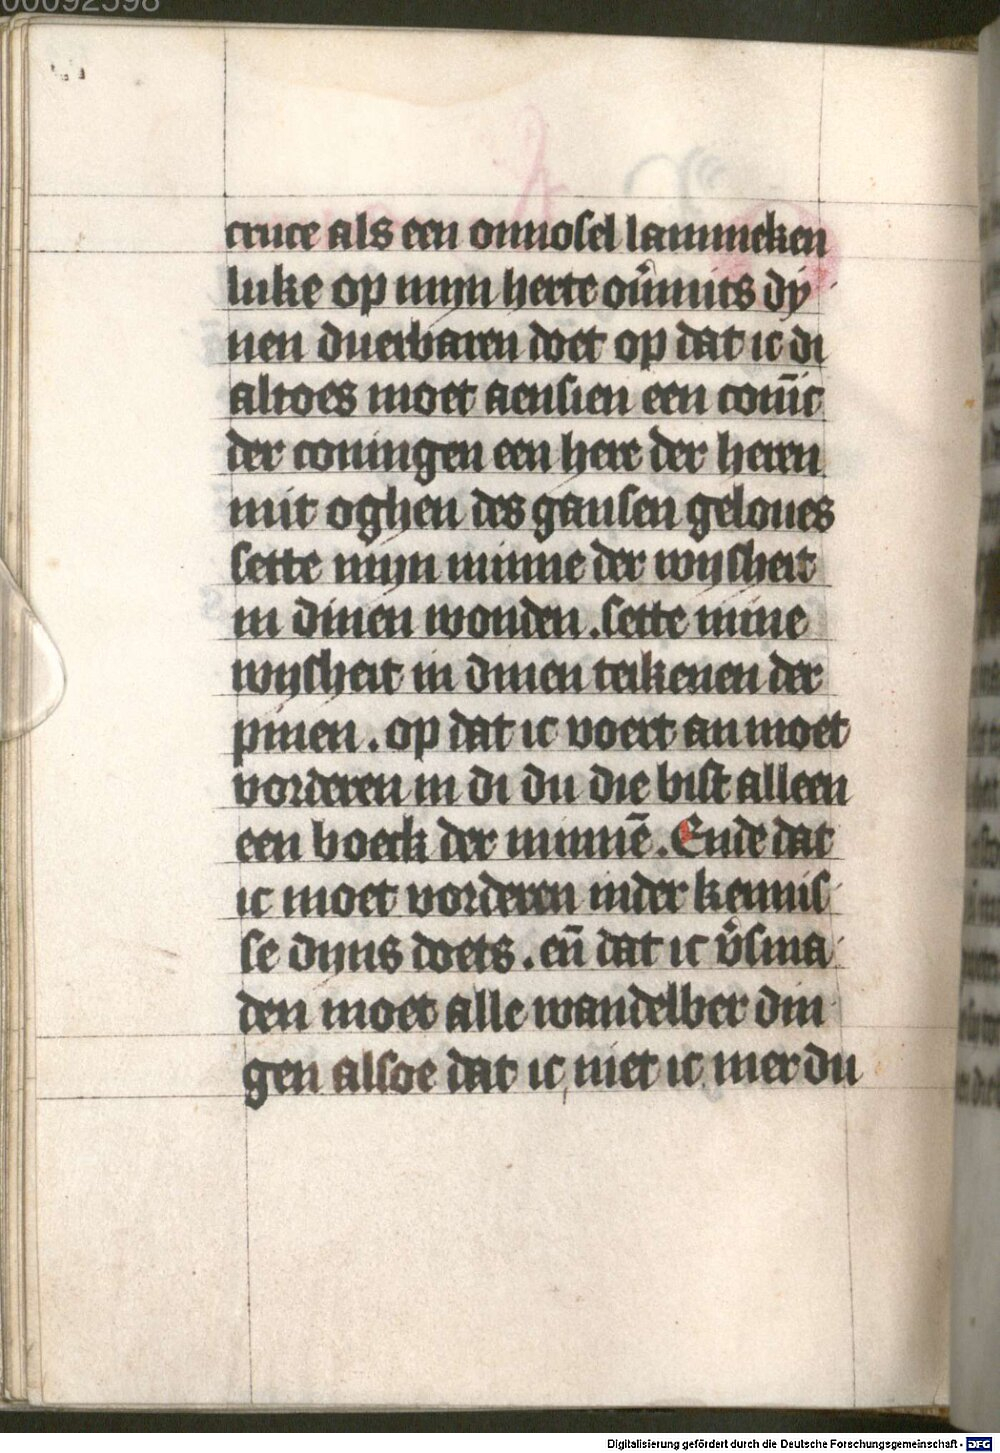 00092598
cruce als een onnosel lammeken
luke op mijn herte ou̾mits dÿ
nen duerbaren doet op dat ic di
altoes moet aensien een coni̅c
der coningen een here der heren
mit oghen des gansen geloues
sette mijn minne der wijsheit
in dinen wonden. sette mine
wijsheit in dinen teikenen der
pinen. op dat ic voert an moet
vorderen in di du die bist alleen
een boeck der minne̅. Ende dat
ic moet vorderen inder kennis
se dijns doets. en̅ dat ic v̾sma
den moet alle wandelber din
gen alsoe dat ic niet ic mer du
Digitalisierung gefördert durch die Deutsche Forschungsgemeinschaft - DFG